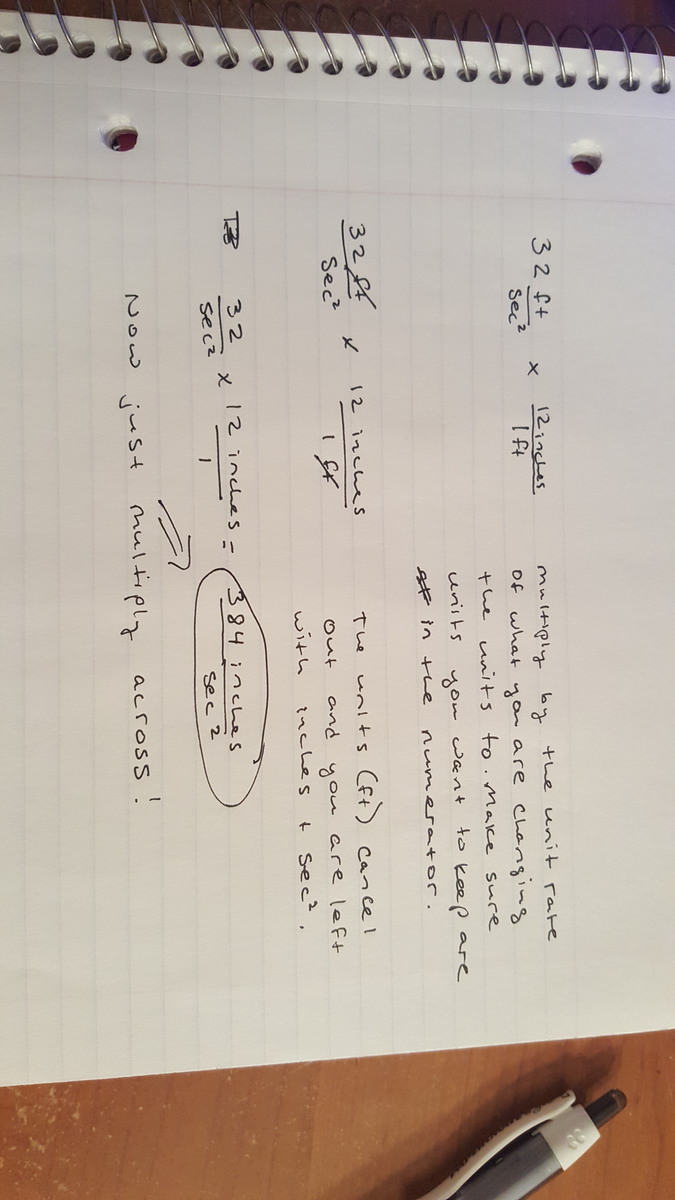 32 ft/sec² x 12 inches/1 ft
multiply by the unit rate
of what you are changing
the units to. Make sure
units you want to keep are
in the numerator.
32 ft/sec² x 12 inches/1 ft
The units (ft) cancel
out and you are left
with inches + sec².
32/sec² x 12 inches/1 = 384 inches/sec²
Now just multiply across!